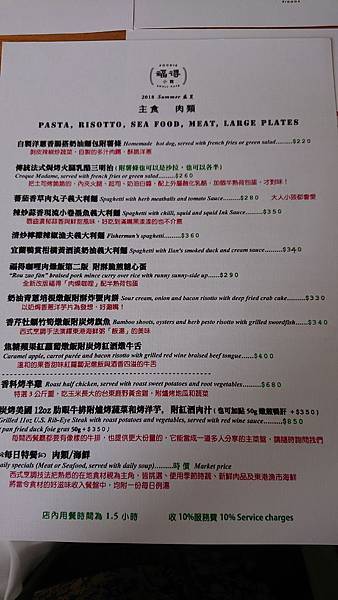 FOODIE
福得
小館
2018 Summer 盛夏
主食 肉類
PASTA, RISOTTO, SEA FOOD, MEAT, LARGE PLATES
自製洋蔥香腸搭奶油麵包附薯條 Homemade hot dog, served with french fries or green salad.......$220
傳統法式與烤火腿乳酪三明治(附薯條也可以是沙拉，也可以各半)
Croque Madame, served with french fries or green salad........$260
把土司烤脆脆的，內夾火腿、起司、奶油白醬，配上外層融化乳酪，加個半熟荷包蛋，才對味！
蕃茄香草肉丸子義大利麵 Spaghetti with herb meatballs and tomato Sauce.......$280 大人小孩都會愛
辣炒蒜香現流小卷墨魚義大利麵 Spaghetti with chili, squid and squid Ink Sauce........$350
清炒檸檬辣味漁夫義大利麵 Fisherman's spaghetti........$360
宜蘭鴨賞柑橘黃酒淡奶油義大利麵 Spaghetti with Ilan's smoked duck and cream sauce........$340
福得咖哩肉燥飯第二版 附酥脆煎糖心蛋
"Rou zao fàn" braised pork mince curry over rice with runny sunny-side up........$290
全新改版福得「肉燥咖哩」配半熟荷包蛋
Sour cream, onion and bacon risotto with deep fried crab cake........$330
Bamboo shoots, oysters and herb pesto risotto with grilled swordfish.......$340
Caramel apple, carrot purée and bacon risotto with grilled red wine braised beef tongue.......$400
香料烤半雞 Roast half chicken, served with roast sweet potatoes and root vegetables..........$680
特選3公斤重，吃玉米長大的台東鹿野黃金雞，附爐烤地瓜和蔬菜
炭烤美國 12oz 肋眼牛排附爐烤蔬菜和烤洋芋，附紅酒肉汁 (也可加點 50g 嫩煎鴨肝 +$350)
Grilled 11oz U.S. Rib-Eye Steak with roast potatoes and vegetables, served with red wine sauce........$850
pan fried duck foie gras 50g+$350)
每間西餐廳都要有像樣的牛排，也提供更大份量的，它能當成一道多人分享的主菜盤，請隨時詢問我們
每日特餐 肉類/海鮮
daily specials (Meat or Seafood, served with daily soup)........時價 Market price
將當令食材的好滋味收入餐盤中，均附一份每日例湯
店內用餐時間為 1.5 小時 收 10%服務費 10% Service charges